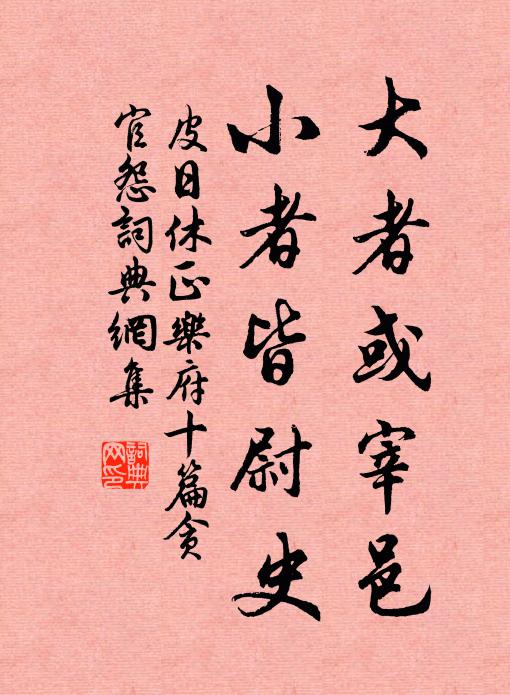 大者或宰邑
小者皆尉史
皮日休正樂府十篇貪
官怨詞典網集
詞典
网印